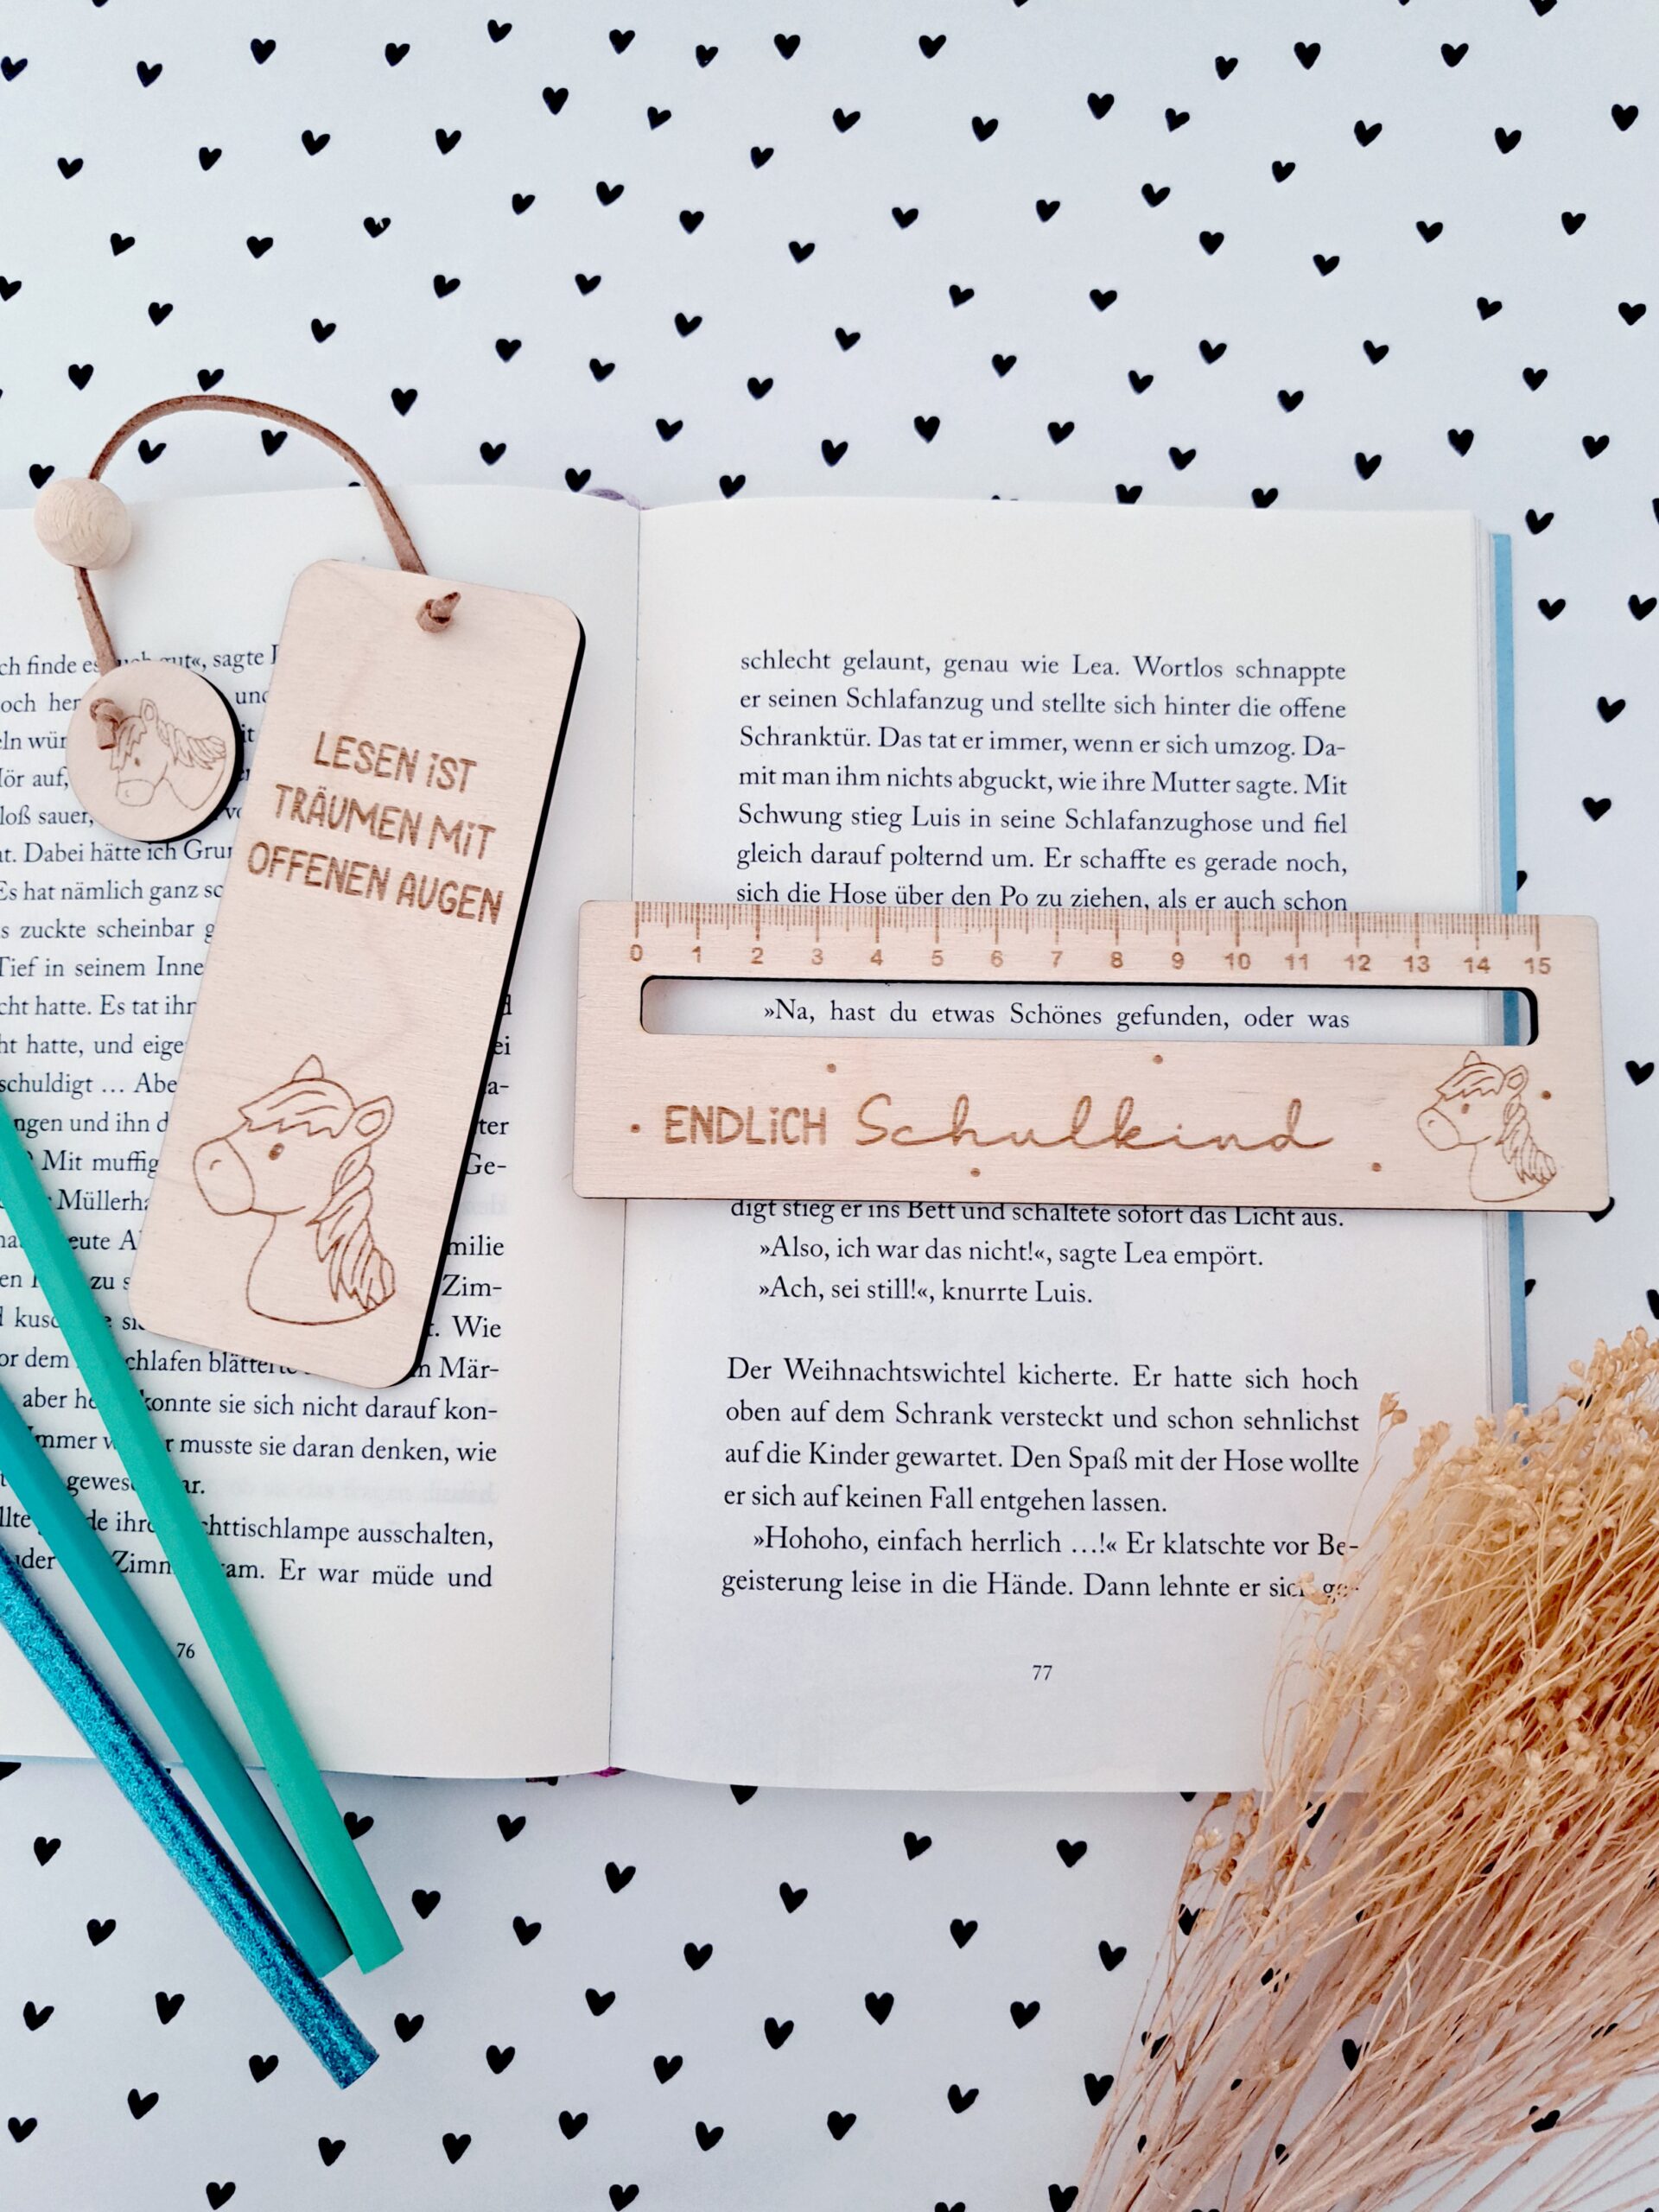 LESEN iST
TRÄUMEN MiT
OFFENEN AUGEN
ch finde es gut«, sagte
och her und
eln wür
Hör auf,
loß sauer,
nt. Dabei hätte ich Grun
Es hat nämlich ganz sc
s zuckte scheinbar g
Tief in seinem Inne
cht hatte. Es tat ihr
ht hatte, und eige ei
schuldigt … Abe a-
ngen und ihn d ter
Mit muffig Ge-
Müllerha
eute A milie
zu s Zim-
d kusc e si t. Wie
or dem chlafen blätterte n Mär-
aber he konnte sie sich nicht darauf kon-
Immer w r musste sie daran denken, wie
gewese ar.
llte de ihre chttischlampe ausschalten,
uder Zimm kam. Er war müde und
76
schlecht gelaunt, genau wie Lea. Wortlos schnappte
er seinen Schlafanzug und stellte sich hinter die offene
Schranktür. Das tat er immer, wenn er sich umzog. Da-
mit man ihm nichts abguckt, wie ihre Mutter sagte. Mit
Schwung stieg Luis in seine Schlafanzughose und fiel
gleich darauf polternd um. Er schaffte es gerade noch,
sich die Hose über den Po zu ziehen, als er auch schon
0 1 2 3 4 5 6 7 8 9 10 11 12 13 14 15
»Na, hast du etwas Schönes gefunden, oder was
ENDLiCH Schulkind
digt stieg er ins Bett und schaltete sofort das Licht aus.
»Also, ich war das nicht!«, sagte Lea empört.
»Ach, sei still!«, knurrte Luis.
Der Weihnachtswichtel kicherte. Er hatte sich hoch
oben auf dem Schrank versteckt und schon sehnlichst
auf die Kinder gewartet. Den Spaß mit der Hose wollte
er sich auf keinen Fall entgehen lassen.
»Hohoho, einfach herrlich …!« Er klatschte vor Be-
geisterung leise in die Hände. Dann lehnte er sich ge-
77